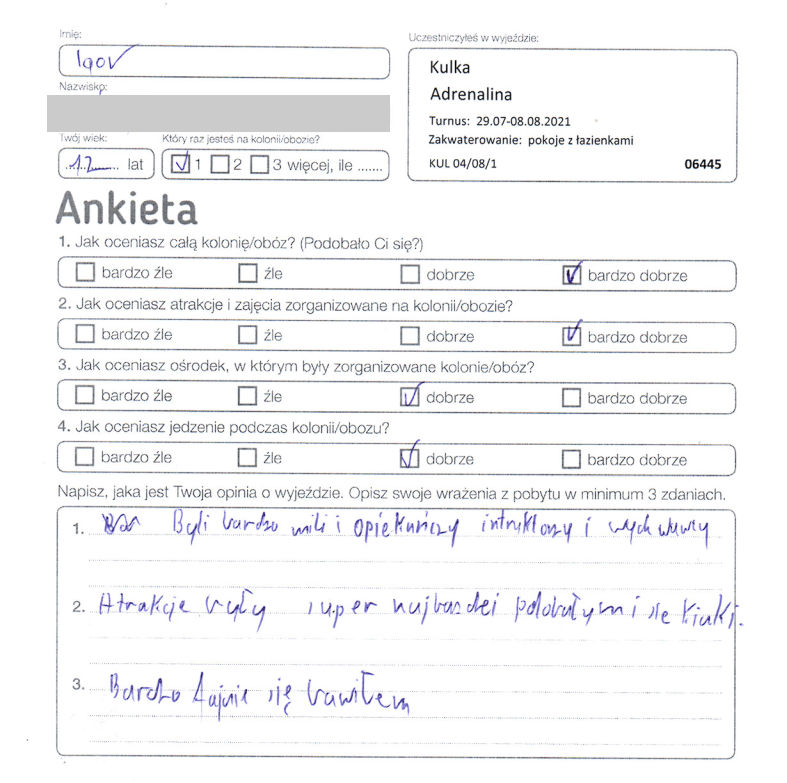 Imię:
Igor
Nazwisko:
Twój wiek:
12 lat
Który raz jesteś na kolonii/obozie?
1 2 3 więcej, ile .......
Uczestniczyłeś w wyjeździe:
Kulka
Adrenalina
Turnus: 29.07-08.08.2021
Zakwaterowanie: pokoje z łazienkami
KUL 04/08/1 06445
Ankieta
1. Jak oceniasz całą kolonię/obóz? (Podobało Ci się?)
bardzo źle źle dobrze bardzo dobrze
2. Jak oceniasz atrakcje i zajęcia zorganizowane na kolonii/obozie?
bardzo źle źle dobrze bardzo dobrze
3. Jak oceniasz ośrodek, w którym były zorganizowane kolonie/obóz?
bardzo źle źle dobrze bardzo dobrze
4. Jak oceniasz jedzenie podczas kolonii/obozu?
bardzo źle źle dobrze bardzo dobrze
Napisz, jaka jest Twoja opinia o wyjeździe. Opisz swoje wrażenia z pobytu w minimum 3 zdaniach.
1. Byli bardzo mili i opiekuńczy i
2. Atrakcje były super podobały mi się
3. Bardzo fajnie się bawiłem